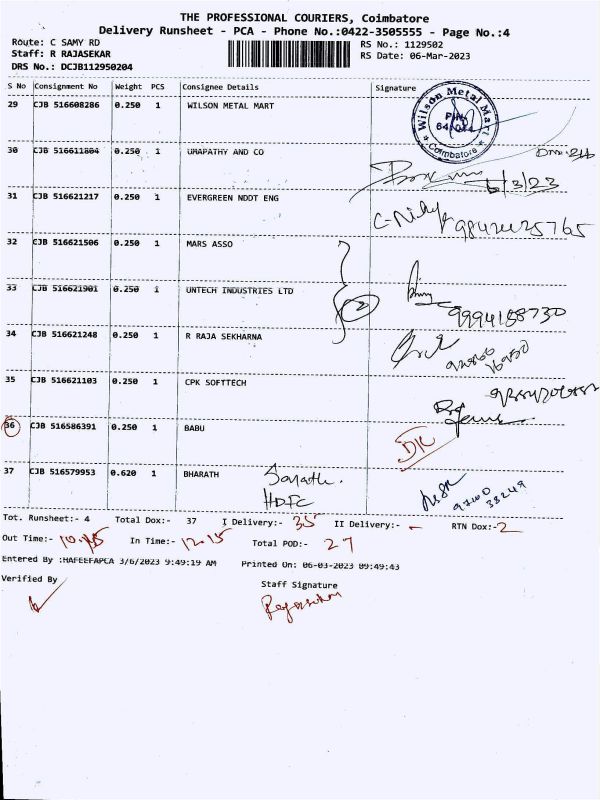 THE PROFESSIONAL COURIERS, Coimbatore
Delivery Runsheet - PCA - Phone No.:0422-3505555 - Page No.:4
Route: C SAMY RD
Staff: R RAJASEKAR
DRS No.: DCJB112950204
RS No.: 1129502
RS Date: 06-Mar-2023
S No Consignment No Weight PCS Consignee Details Signature
29 CJB 516608286 0.250 1 WILSON METAL MART
Wilson Metal Mart
PIN
Coimbatore
30 CJB 516611804 0.250 1 UMAPATHY AND CO
6/3/23
31 CJB 516621217 0.250 1 EVERGREEN NDDT ENG
32 CJB 516621506 0.250 1 MARS ASSO
33 CJB 516621901 0.250 1 UNTECH INDUSTRIES LTD
2
9994188730
34 CJB 516621248 0.250 1 R RAJA SEKHARNA
35 CJB 516621103 0.250 1 CPK SOFTTECH
36 CJB 516586391 0.250 1 BABU
37 CJB 516579953 0.620 1 BHARATH
Sarath.
HDFC
Tot. Runsheet:- 4 Total Dox:- 37 I Delivery:- 35 II Delivery:- - RTN Dox:- 2
Out Time:- 10.15 In Time:- 12.15 Total POD:- 27
Entered By :HAFEEFAPCA 3/6/2023 9:49:19 AM Printed On: 06-03-2023 09:49:43
Verified By
Staff Signature